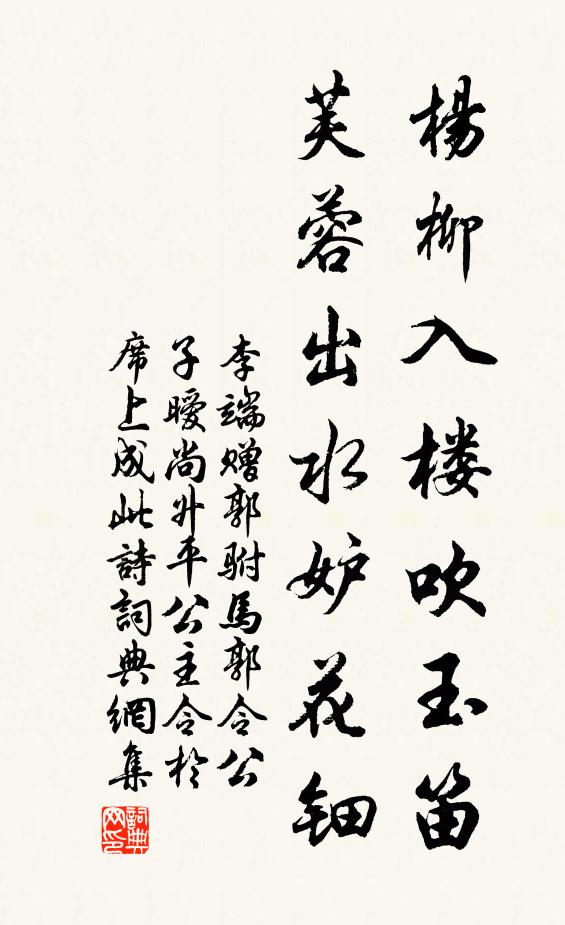 楊柳入楼吹玉笛
芙蓉出水妒花钿
李端赠郭駙馬郭令公
子曖尚升平公主令於
席上成此詩詞典網集
詞典网印